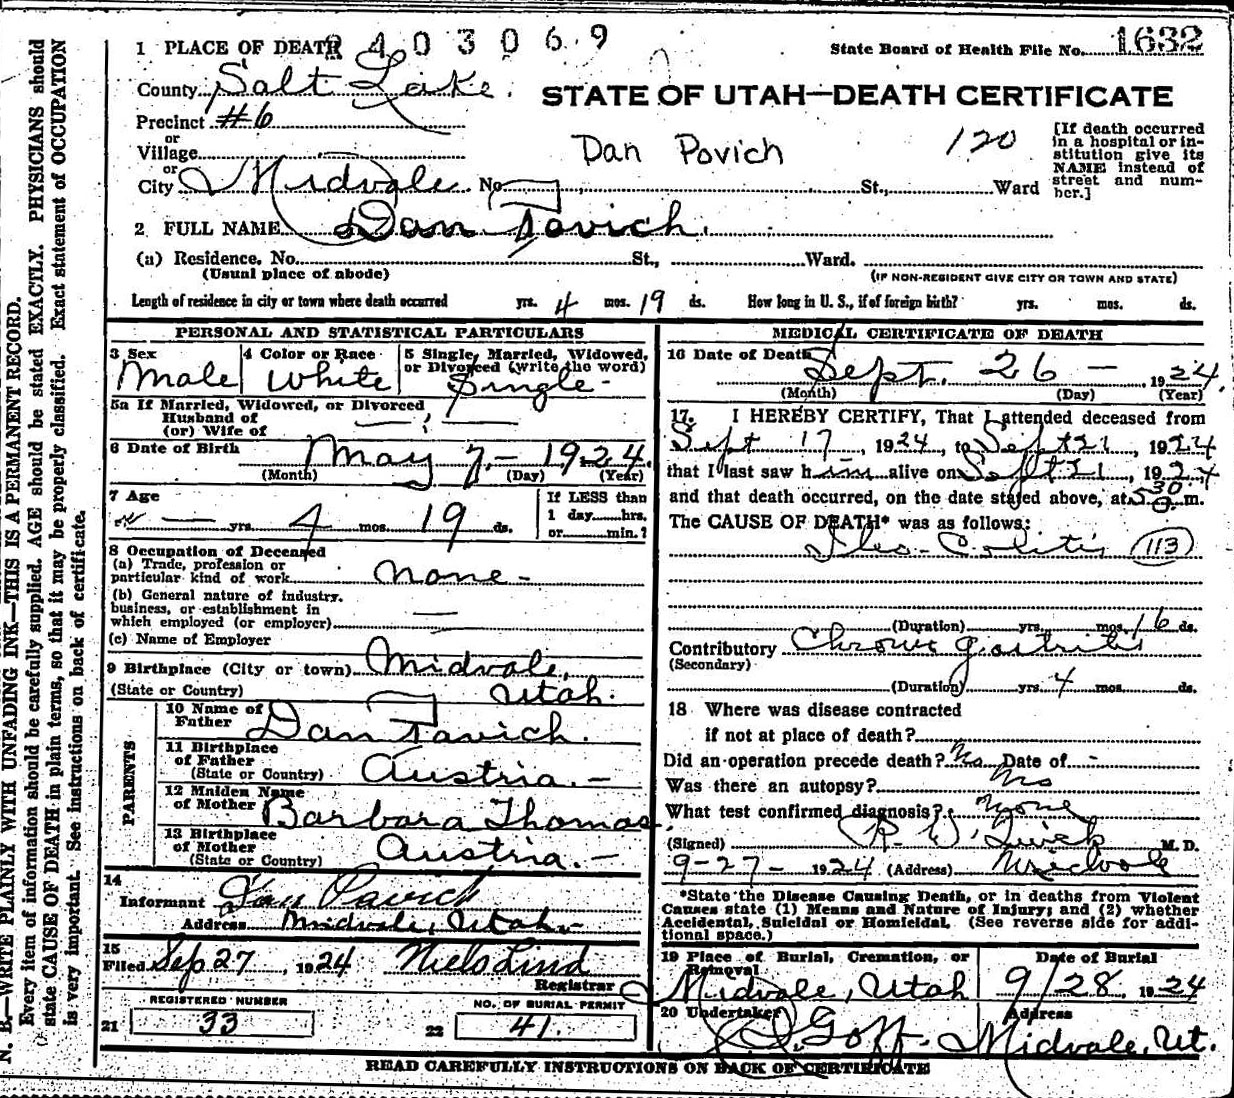 1 PLACE OF DEATH 2403069
State Board of Health File No. 1632
County Salt Lake.
STATE OF UTAH—DEATH CERTIFICATE
Precinct #6
or
Village
Dan Povich 120
[If death occurred in a hospital or institution give its NAME instead of street and number.]
or
City Midvale No. St., Ward
2 FULL NAME Dan Tovich.
(a) Residence. No. St., Ward.
(Usual place of abode) (IF NON-RESIDENT GIVE CITY OR TOWN AND STATE)
Length of residence in city or town where death occurred yrs. 4 mos. 19 ds. How long in U. S., if of foreign birth? yrs. mos. ds.
PERSONAL AND STATISTICAL PARTICULARS
3 Sex 4 Color or Race 5 Single, Married, Widowed, or Divorced (write the word)
Male White Single -
5a If Married, Widowed, or Divorced
Husband of
(or) Wife of
6 Date of Birth May 7 - 1924.
(Month) (Day) (Year)
7 Age If LESS than
— yrs. 4 mos. 19 ds. 1 day hrs. or min.?
8 Occupation of Deceased
(a) Trade, profession or
particular kind of work none -
(b) General nature of industry,
business, or establishment in
which employed (or employer) —
(c) Name of Employer
9 Birthplace (City or town) Midvale,
(State or Country) Utah.
PARENTS
10 Name of Father Dan Tavich.
11 Birthplace of Father
(State or Country) Austria. -
12 Maiden Name of Mother Barbara Thomas.
13 Birthplace of Mother
(State or Country) Austria. -
14
Informant Dan Pavich
Address Midvale, Utah
15
Filed Sep 27, 1924 Niels Lind
Registrar
REGISTERED NUMBER NO. OF BURIAL PERMIT
21 33 22 41.
MEDICAL CERTIFICATE OF DEATH
16 Date of Death Sept. 26 - 1924.
(Month) (Day) (Year)
17. I HEREBY CERTIFY, That I attended deceased from
Sept 17, 1924, to Sept 21, 1924
that I last saw him alive on Sept 21, 1924
and that death occurred, on the date stated above, at 5 30 a. m.
The CAUSE OF DEATH* was as follows:
Ileo-Colitis (113)
(Duration) yrs. mos. 16 ds.
Contributory Chronic gastritis
(Secondary)
(Duration) yrs. 4 mos. ds.
18 Where was disease contracted
if not at place of death?
Did an operation precede death? No Date of -
Was there an autopsy? No
What test confirmed diagnosis? None
(Signed) R. W. Quick M. D.
9-27- 1924 (Address) Midvale
*State the Disease Causing Death, or in deaths from Violent
Causes state (1) Means and Nature of Injury; and (2) whether
Accidental, Suicidal or Homicidal. (See reverse side for addi-
tional space.)
19 Place of Burial, Cremation, or Removal Date of Burial
Midvale, Utah 9/28, 1924
20 Undertaker Address
Goff. Midvale, Ut.
READ CAREFULLY INSTRUCTIONS ON BACK OF CERTIFICATE
N. B.—WRITE PLAINLY WITH UNFADING INK—THIS IS A PERMANENT RECORD.
Every item of information should be carefully supplied. AGE should be stated EXACTLY. PHYSICIANS should
state CAUSE OF DEATH in plain terms, so that it may be properly classified. Exact statement of OCCUPATION
is very important. See instructions on back of certificate.